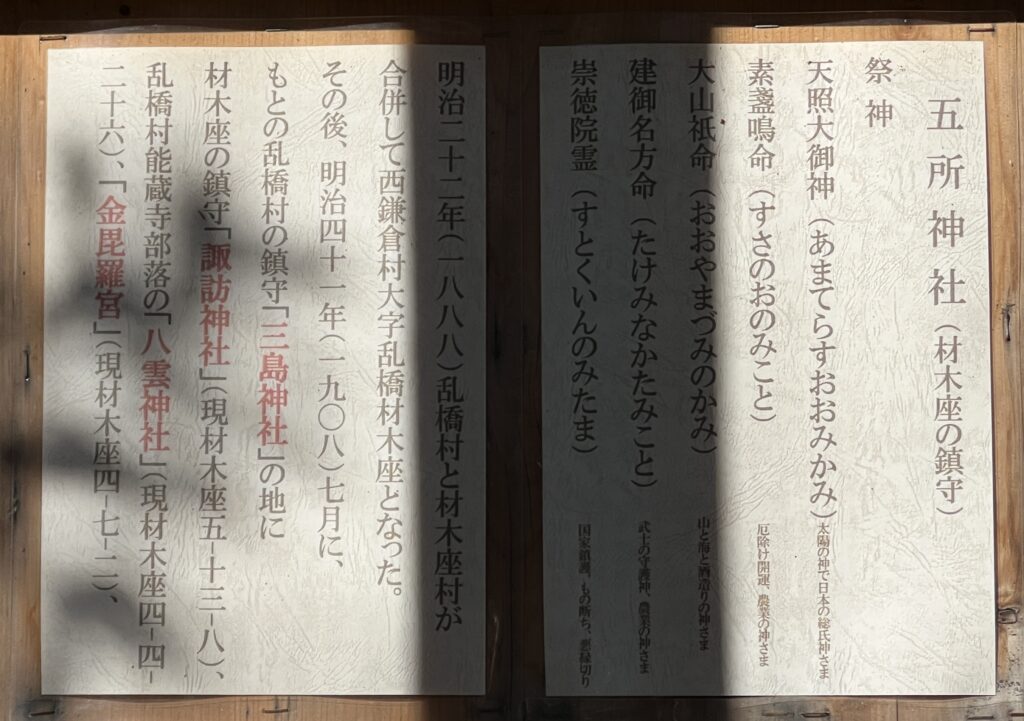 五所神社（材木座の鎮守）
祭神
天照大御神（あまてらすおおみかみ）太陽の神で日本の総氏神さま
素盞鳴命（すさのおのみこと）厄除け開運、農業の神さま
大山祇命（おおやまづみのかみ）山と海と酒造りの神さま
建御名方命（たけみなかたみこと）武士の守護神、農業の神さま
崇徳院霊（すとくいんのみたま）国家鎮護、もの断ち、悪縁切り
明治二十二年（一八八八）乱橋村と材木座村が
合併して西鎌倉村大字乱橋材木座となった。
その後、明治四十一年（一九〇八）七月に、
もとの乱橋村の鎮守「三島神社」の地に
材木座の鎮守「諏訪神社」（現材木座五－十三－八）、
乱橋村能蔵寺部落の「八雲神社」（現材木座四－四－
二十六）、「金毘羅宮」（現材木座四－七－二）、